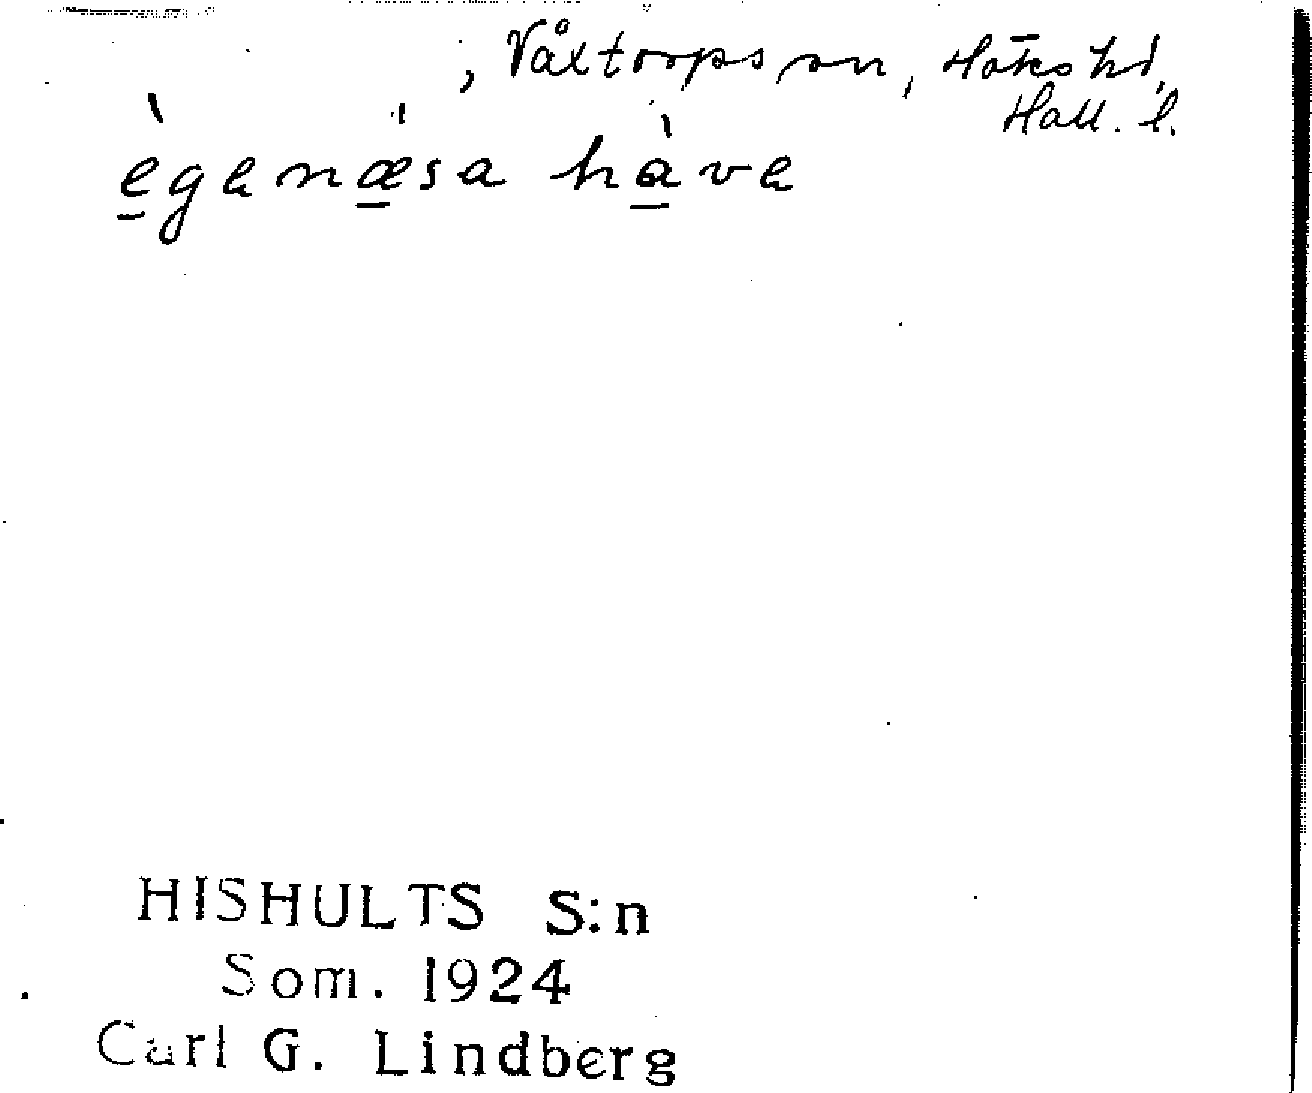 , Våxtorps sn, Höks hd,
Hall. l.
ègenæ̀sa hàve
HISHULTS S:n
Som. 1924
Carl G. Lindberg